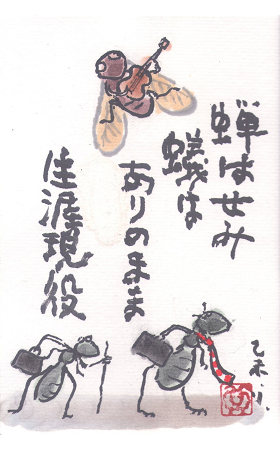 蝉はせみ
蟻は
ありのまま
生涯現役